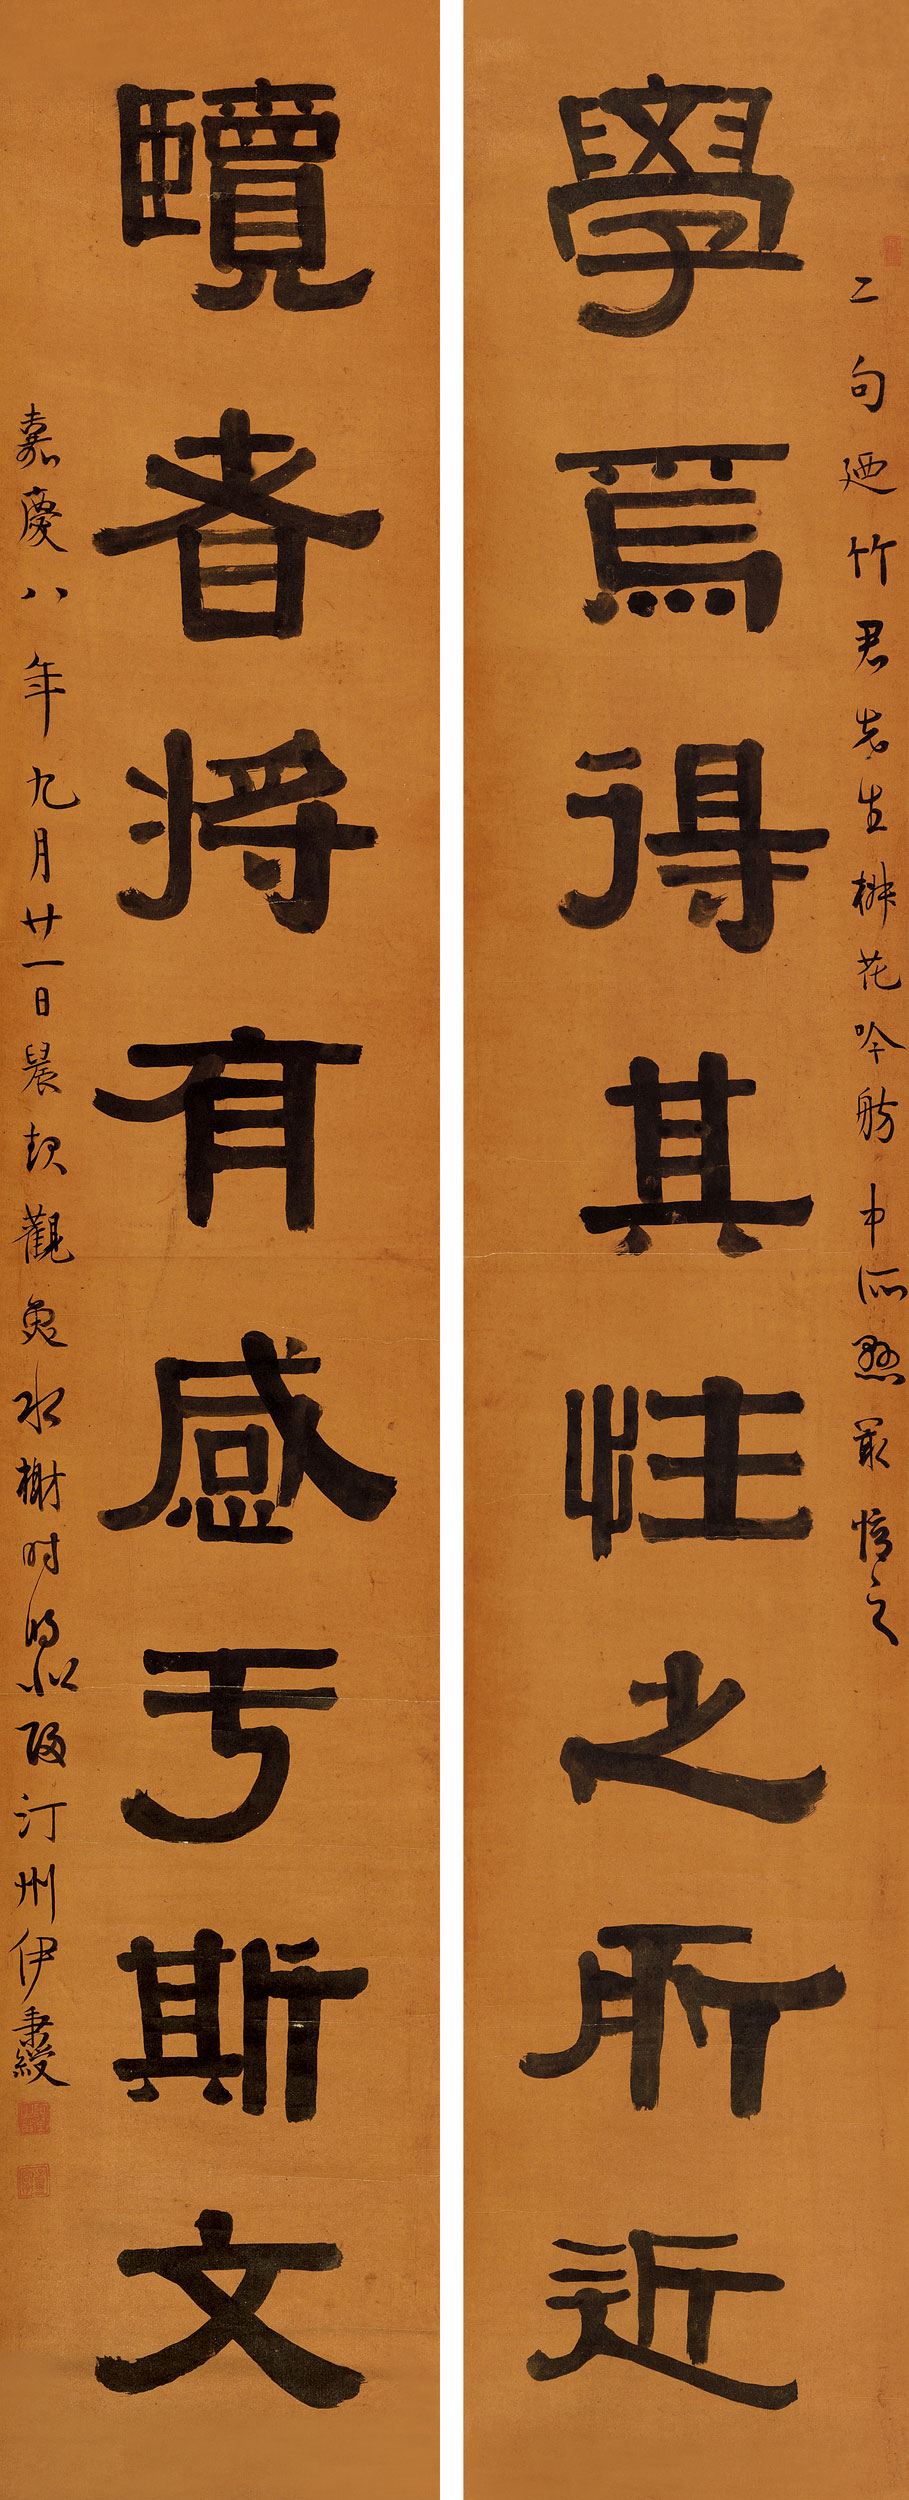 二句廼竹君先生椒花吟舫中所懸最之
學爲得其性之所近
覽者將有感于斯文
嘉慶八年九月廿一日晨起觀魚水榭時歸汀州伊秉綬